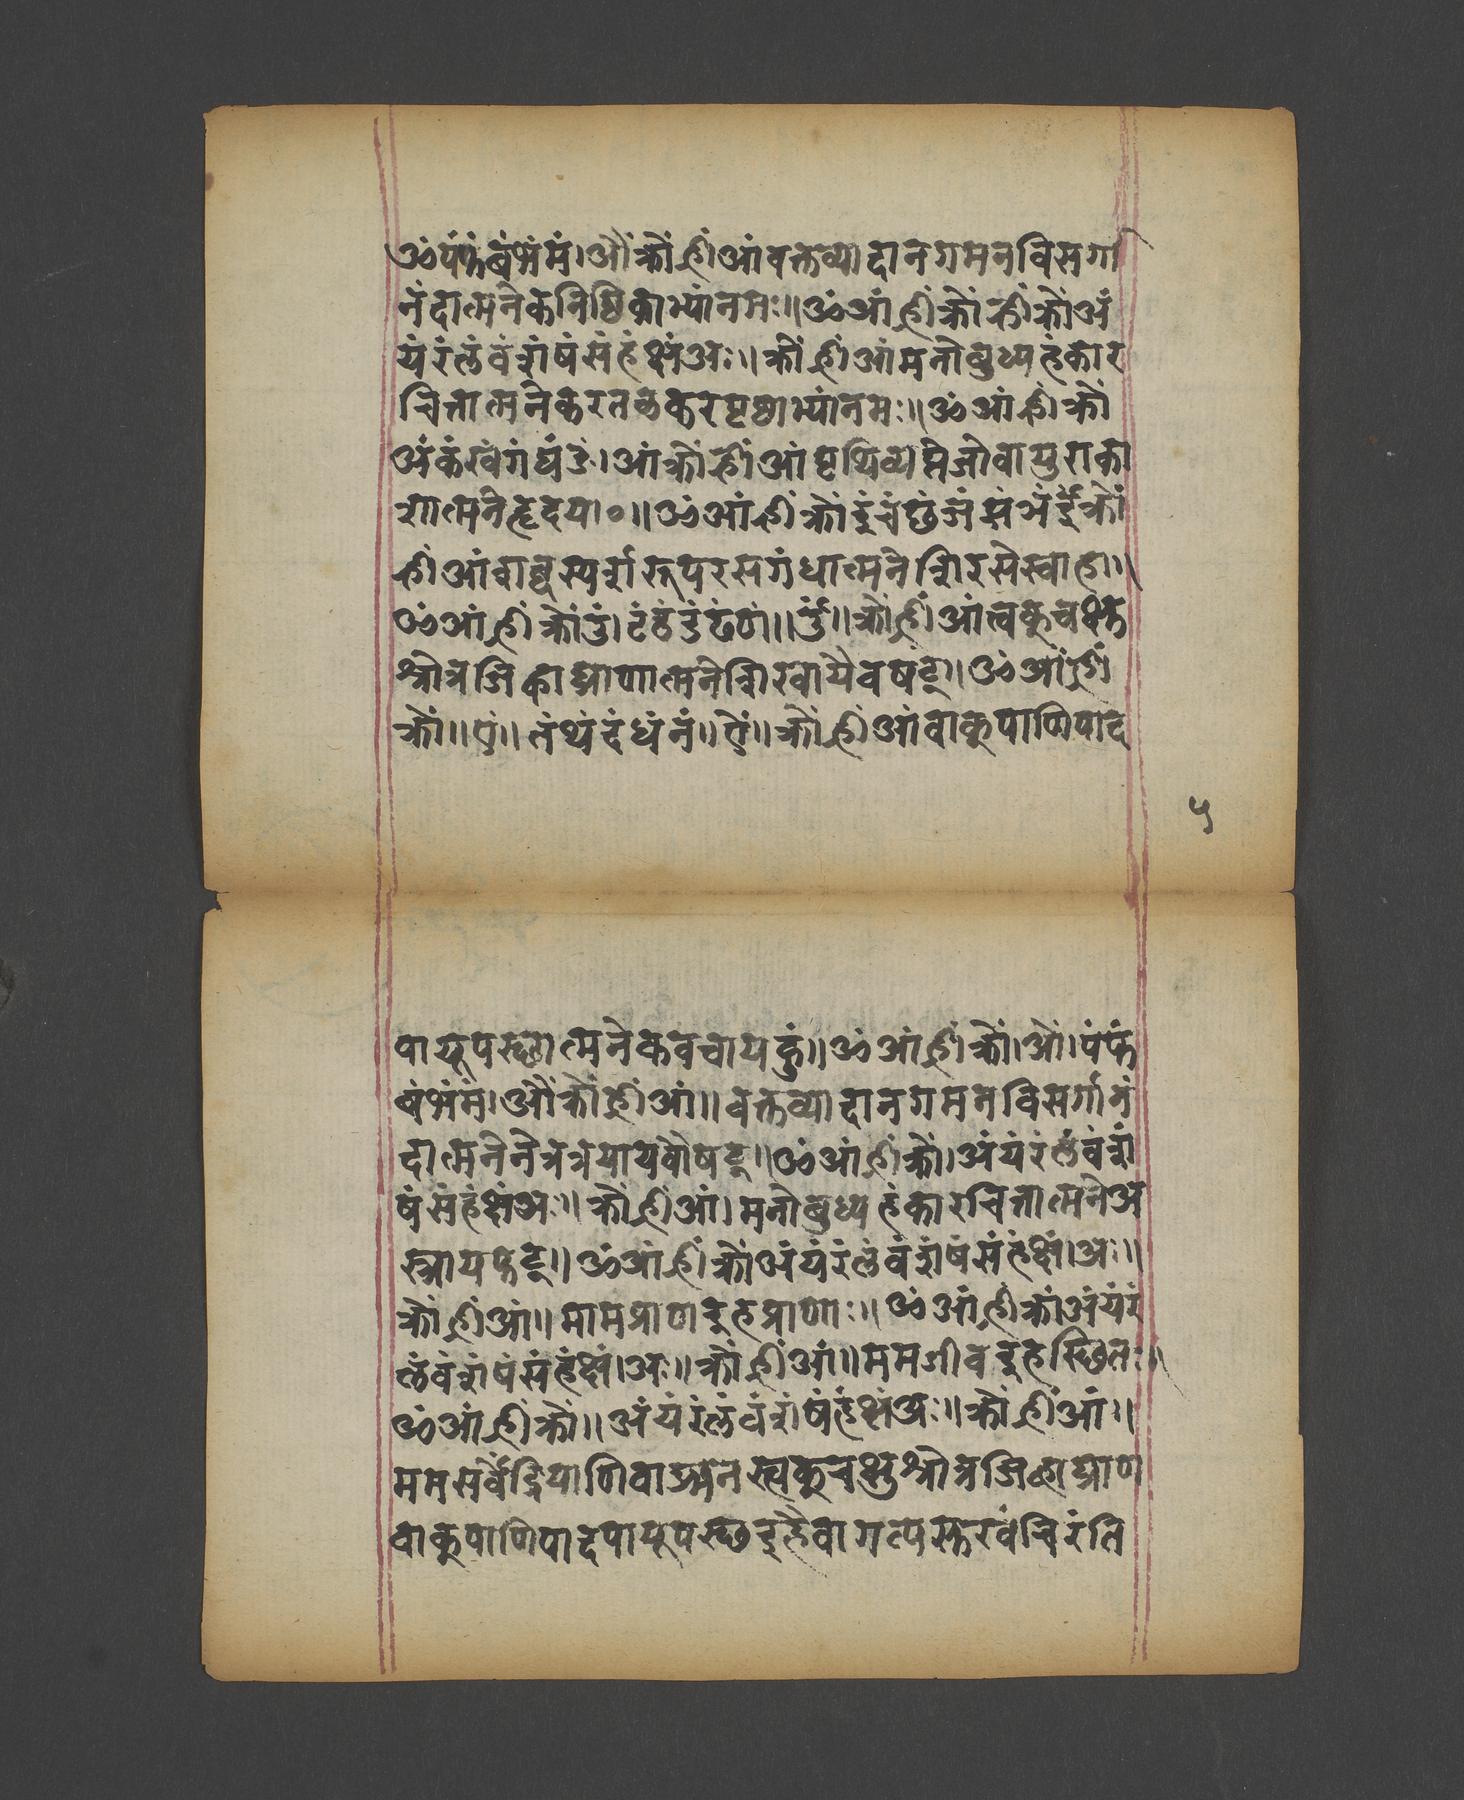 ॐपंफंबंभंमं।औंक्रौंह्रींआंवक्तव्यादानगमनविसर्गा
नंदात्मनेकनिष्ठिकाभ्यांनमः॥ॐआंह्रींक्रौंह्रींक्रौंअं
यंरंलंवंशंषंसंहंक्षंअः॥क्रौंह्रींआंमनोबुध्यहंकार
चित्तात्मनेकरतलकरपृष्ठाभ्यांनमः॥ॐआंह्रींक्रौं
अंकंखंगंघंङं।आंक्रौंह्रींआंपृथिव्यप्तेजोवायुराका
शात्मनेहृदया०॥ॐआंह्रींक्रौंइंचंछंजंझंञंईंक्रौं
ह्रींआंशब्दस्पर्शरूपरसगंधात्मनेशिरसेस्वाहा॥
ॐआंह्रींक्रौंउं।टंठंडंढंणं॥ऊं॥क्रौंह्रींआंत्वक्चक्षु
श्रोत्रजिह्वाघ्राणात्मनेशिखायैवषट्॥ॐआंह्रीं
क्रौं॥एं॥तंथंदंधंनं॥ऐं॥क्रौंह्रींआंवाक्पाणिपाद
५
पायूपस्छात्मनेकवचायहुं॥ॐआंह्रींक्रौं।ओं।पंफं
बंभंमं।औंक्रौंह्रींआं॥वक्तव्यादानगमनविसर्गानं
दात्मनेनेत्रत्रयायवौषट्॥ॐआंह्रींक्रौं।अंयंरंलंवंशं
षंसंहंक्षंअः॥क्रौंह्रींआं।मनोबुध्यहंकारचित्तात्मनेअ
स्त्रायफट्॥ॐआंह्रींक्रौंअंयंरंलंवंशंषंसंहंक्षं।अः॥
क्रौंह्रींआं॥मामप्राणइहप्राणाः॥ॐआंह्रींक्रौंअंयंरं
लंवंशंषंसंहंक्षं।अः॥क्रौंह्रींआं॥ममजीवइहस्छितः॥
ॐआंह्रींक्रौं॥अंयंरंलंवंशंषंहंक्षंअः॥क्रौंह्रींआं॥
ममसर्वेंद्रियाणिवाङ्मनस्त्वक्चक्षुश्रोत्रजिह्वाघ्राण
वाक्पाणिपादपायूपस्छइहैवागत्यसुखंचिरंति